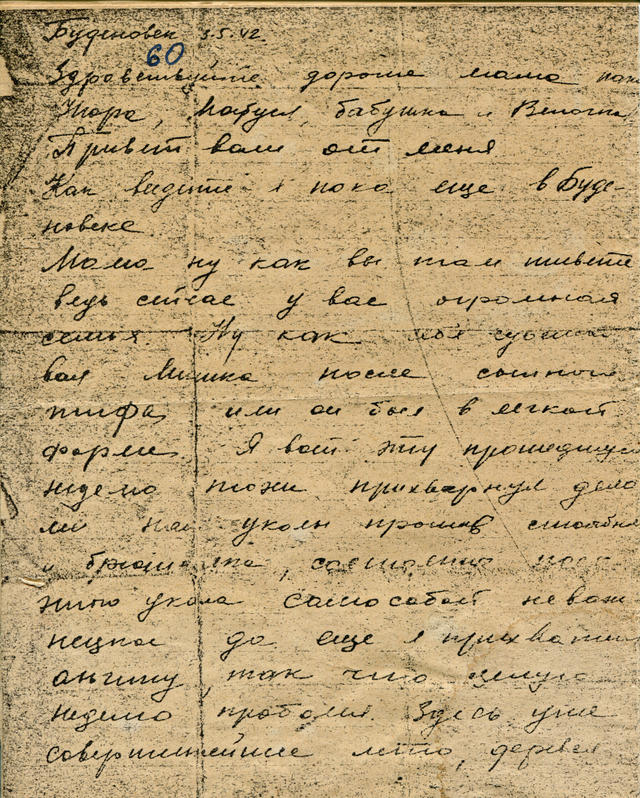 Буденовск 3.5.42
60
Здравствуйте дорогие мама папа
Жора, бабушка и
Привет вам от меня
Как видите я пока еще в Буде-
новске
Мама ну как вы там живете
ведь сейчас у вас огромная
семья. Ну как моя
Мишка после сыпного
тифа или он был в легкой
форме. Я вот эту прошедшую
неделю тоже прихварнул дела
ли нам уколы против столбняка
и брюшняка, состояние после
этого укола само собой неваж
нецкое да еще я прихватил
ангину, так что целую
неделю проболел. Здесь уже
совершеннейшее лето, деревья